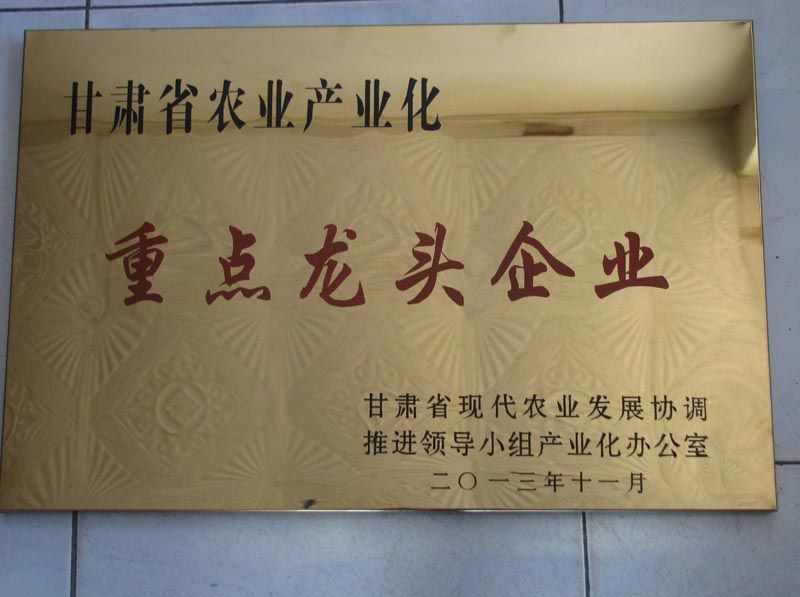 甘肃省农业产业化
重点龙头企业
甘肃省现代农业发展协调
推进领导小组产业化办公室
二〇一三年十一月